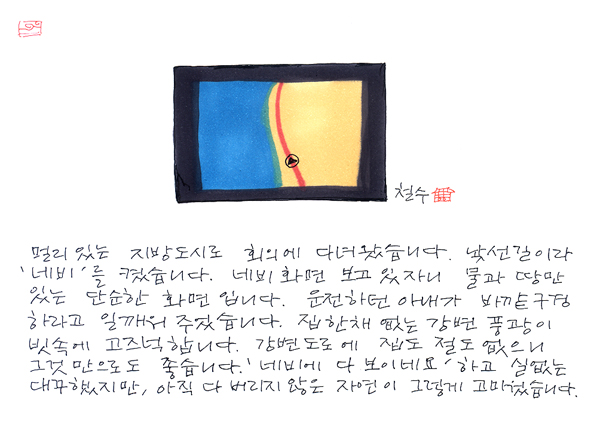 철수
멀리 있는 지방도시로 회의에 다녀왔습니다. 낯선길이라
'네비'를 켰습니다. 네비 화면 보고 있자니 물과 땅만
있는 단순한 화면입니다. 운전하던 아내가 바깥구경
하라고 일깨워 주었습니다. 집한채 없는 강변 풍광이
빗속에 고즈넉합니다. 강변도로에 집도 절도 없으니
그것만으로도 좋습니다. '네비에 다 보이네요' 하고 실없는
대꾸했지만, 아직 다 버리지 않은 자연이 그렇게 고마웠습니다.